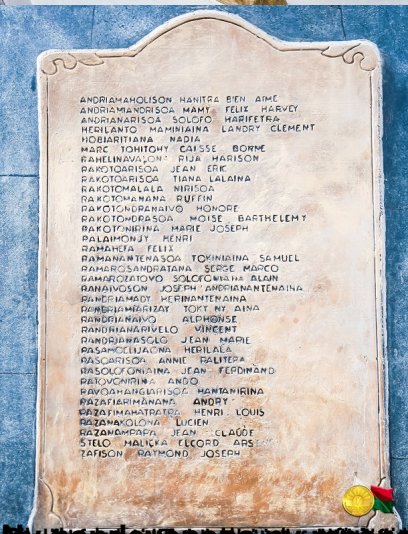 ANDRIAMAHOLISON HANITRA B'EN AIME
ANDRIAMIANDRISOA MAMY FELIX HARVEY
ANDRIANARISOA SOLOFO HARIFETRA
HERILANTO MAMINIAINA LANDRY CLEMENT
HOBIARITIANA NADIA
MARC TOHITOHY CAISSE BORME
RIJA HARISON
RAKOTOARISOA JEAN ERIC
RAKOTOARISOA TIANA LALAINA
RAKOTOMALALA NIRISOA
RAKOTOMANANA RUFFIN
RAKOTONDRANAIVO HONORE
RAKOTONDRASOA MOISE BARTHELEMY
RAKOTONIRINA MARIE JOSEPH
PALAIMONJY HENRI
RAMAHEFA FELIX
RAMANANTENASOA TOKINIAINA SAMUEL
RAMAROSANDRATANA SERGE MARCO
RAMAROZATOVO SOLOFONIAINA ALAIN
RANAIVOSON JOSEPH ANDRIANANTENAINA
RANDRIAMADY HERINANTENAINA
RANDRIAMIARIZAY TOKY NY AINA
RANDRIANAIVO ALPHONSE
RANDRIANARIVELO VINCENT
RANDRIANASOLO JEAN MARIE
HERILALA
RASOARISOA ANNIE PALITERA
RASOLOFONIAINA JEAN FERDINAND
RATOVONIRINA ANDO
RAVOAHANGIARISOA HANTANIRINA
RAZAFIARIMANANA ANDRY
RAZAFIMAHATRATRA HENRI LOUIS
RAZANAKOLONA LUCIEN
RAZANAMPARA JEAN CLAUDE
STELO MALICKA ELCORD
ZAFISON RAYMOND JOSEPH